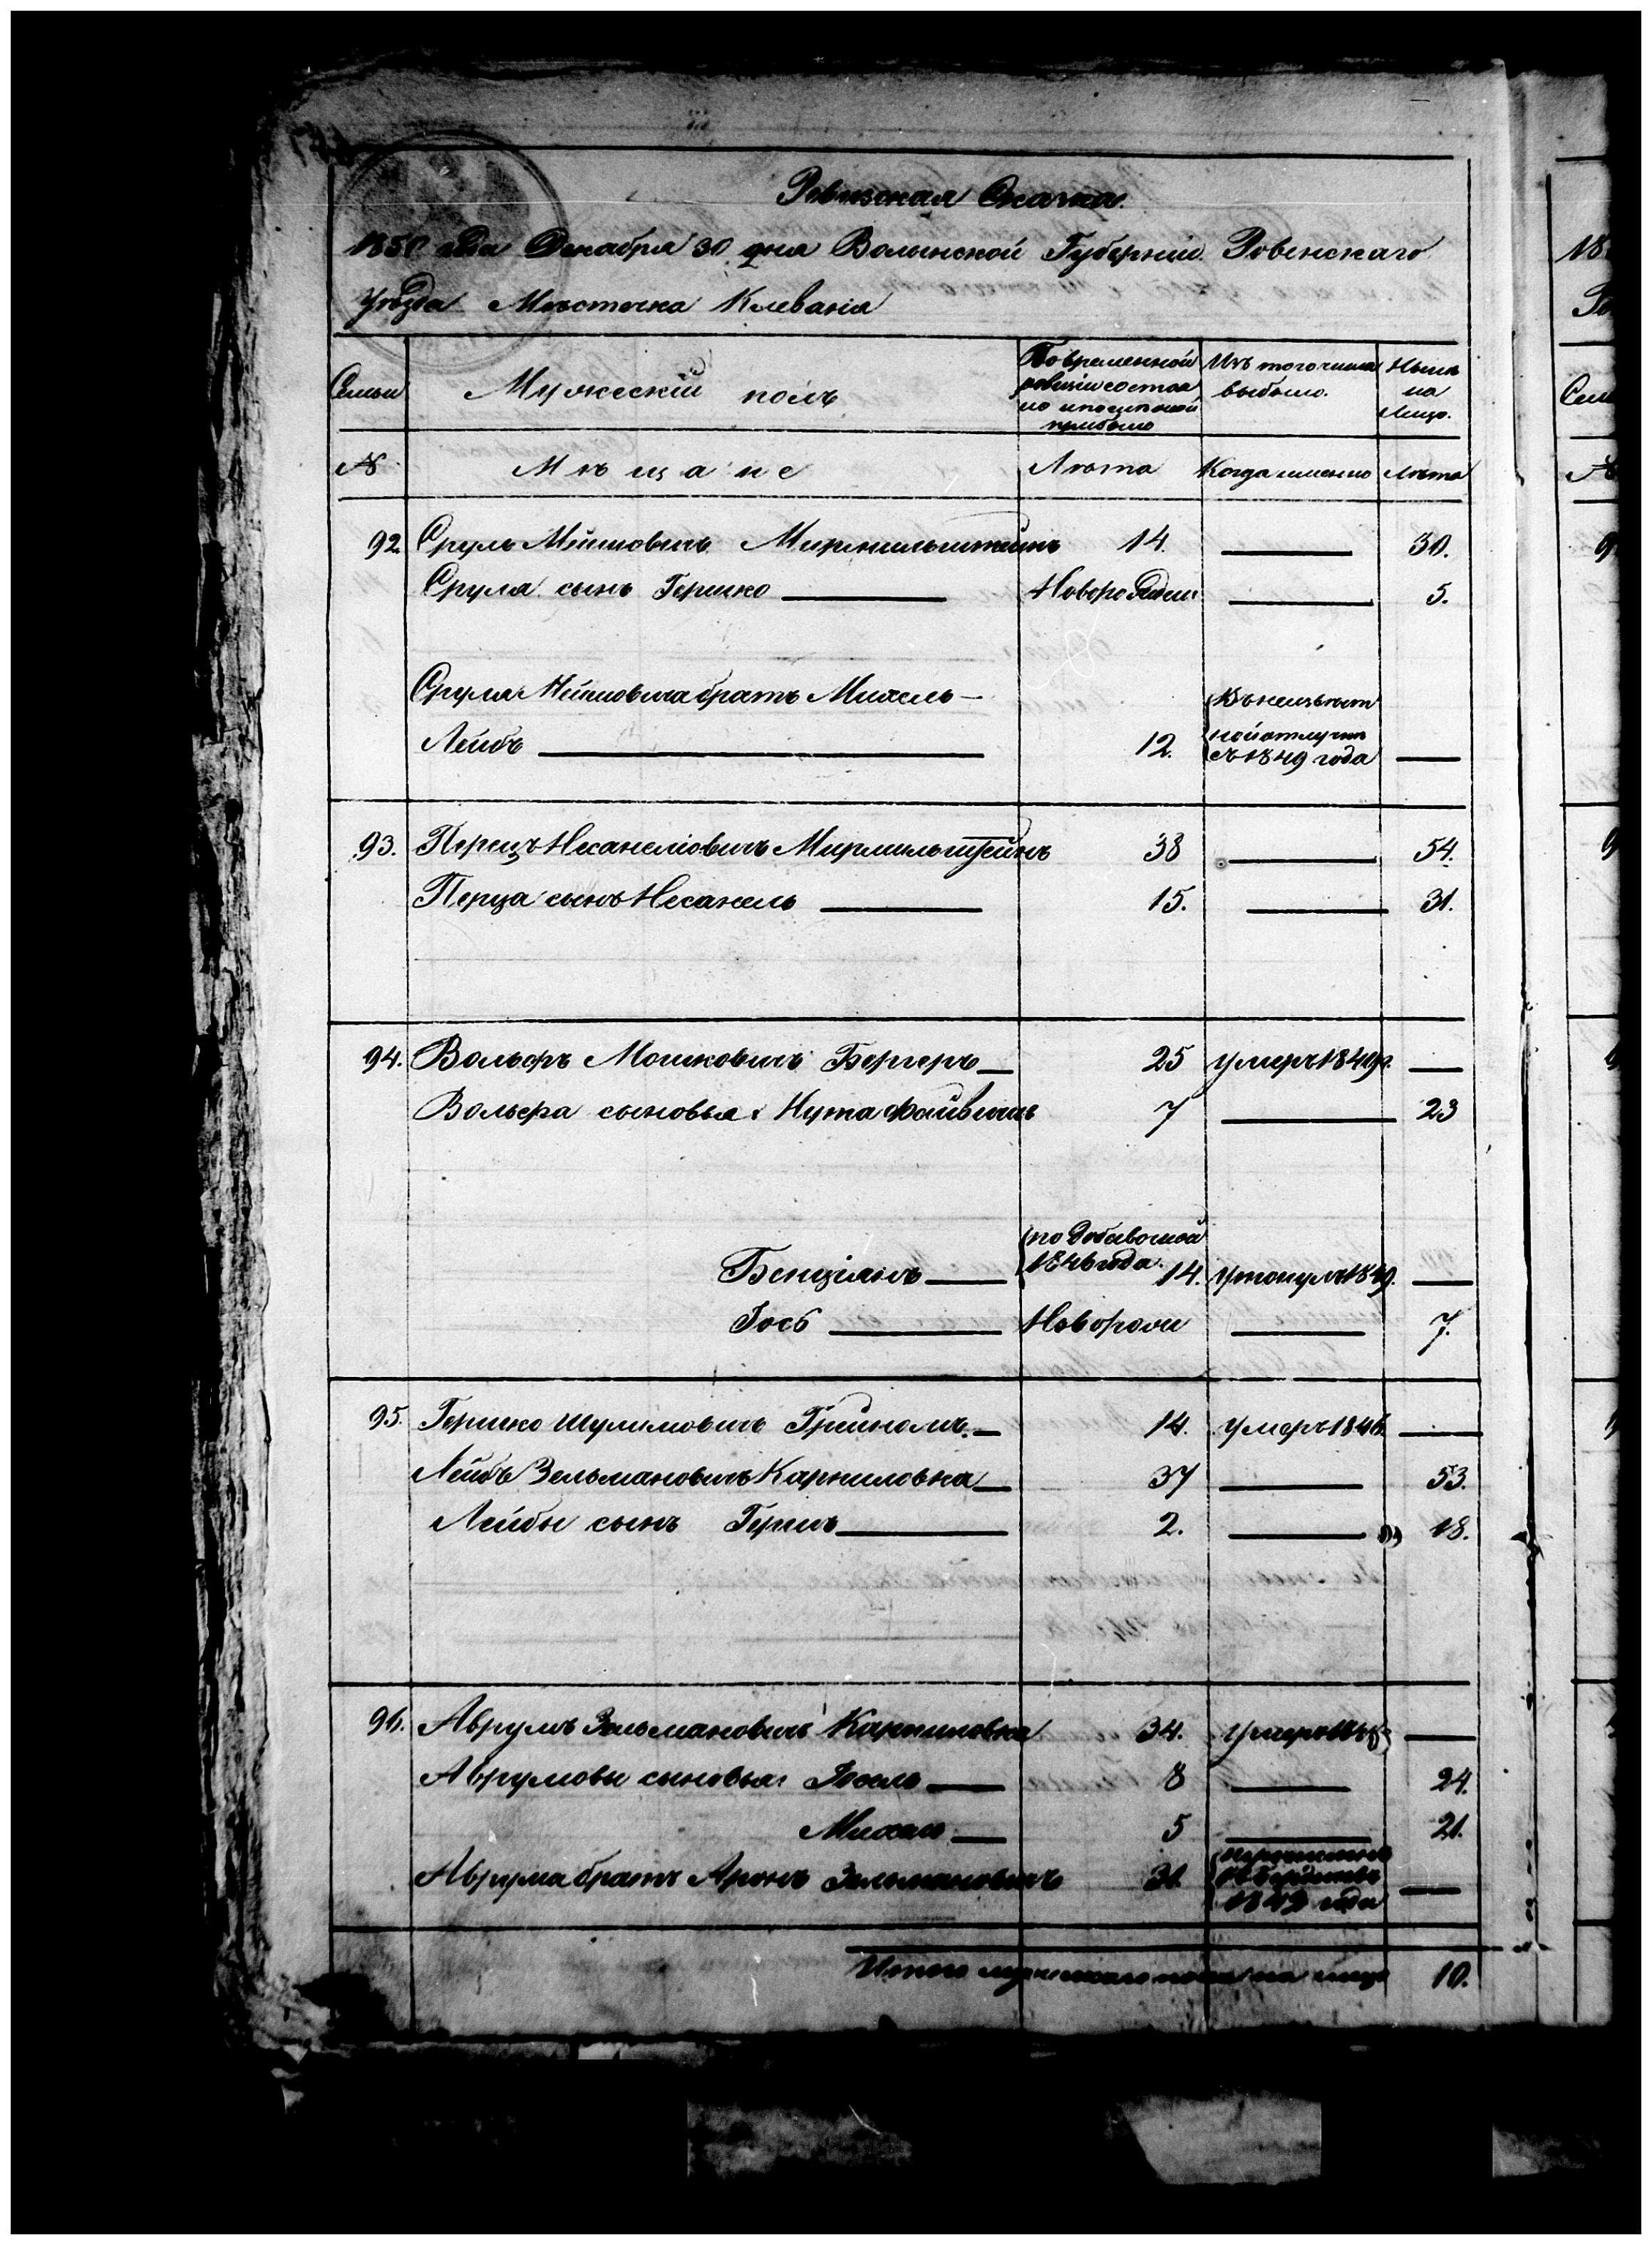 Ревизская Сказка.
1850 года Декабря 30 дня Волынской Губерніи Ровенскаго
Уѣзда Мѣстечка Клеваня
Семьи
Мужескій полъ
По временной
ревизіи состоя
ло и после оной
прибыло
Изъ того числа
выбыло.
Нынѣ
на
лицо.
№
Мѣщане
Лѣта
Когда именно
Лѣта
92. Сруль Мошковичъ Мирмильштейнъ 14. 30.
Сруля сынъ Гершко Новорожден 5.
Сруля братъ Михель
Лейбъ 12.
Въ неизвѣст
ной отлучкѣ
съ 1849 года
93. Перецъ Несанеліовичъ Мирмильштейнъ 38 54.
Перца сынъ Несанель 15. 31.
94. Вольфъ Мошковичъ Бергеръ 25 умеръ 1849г.
Вольфа сыновья: Нута Файвишъ 7 23
по добавочной
1846 года
Бенціянъ 14. утонулъ 1849.
Іосъ Новорож 7.
95. Гершко Шулимовичъ 14. умеръ 1846.
Лейбъ Зельмановичъ Карниловка 37 53.
Лейбы сынъ Гершъ 2. 18.
96. Аврумъ Зельмановичъ Карпиловка 34. умеръ
Аврумовы сыновья: Іосель 8 24.
Михель 5 21.
Аврума братъ Аронъ Зельмановичъ 31.
перечисленъ
въ Бердичевъ
1849 года
Итого мужескаго пола на лицо 10.
18
Сем
№